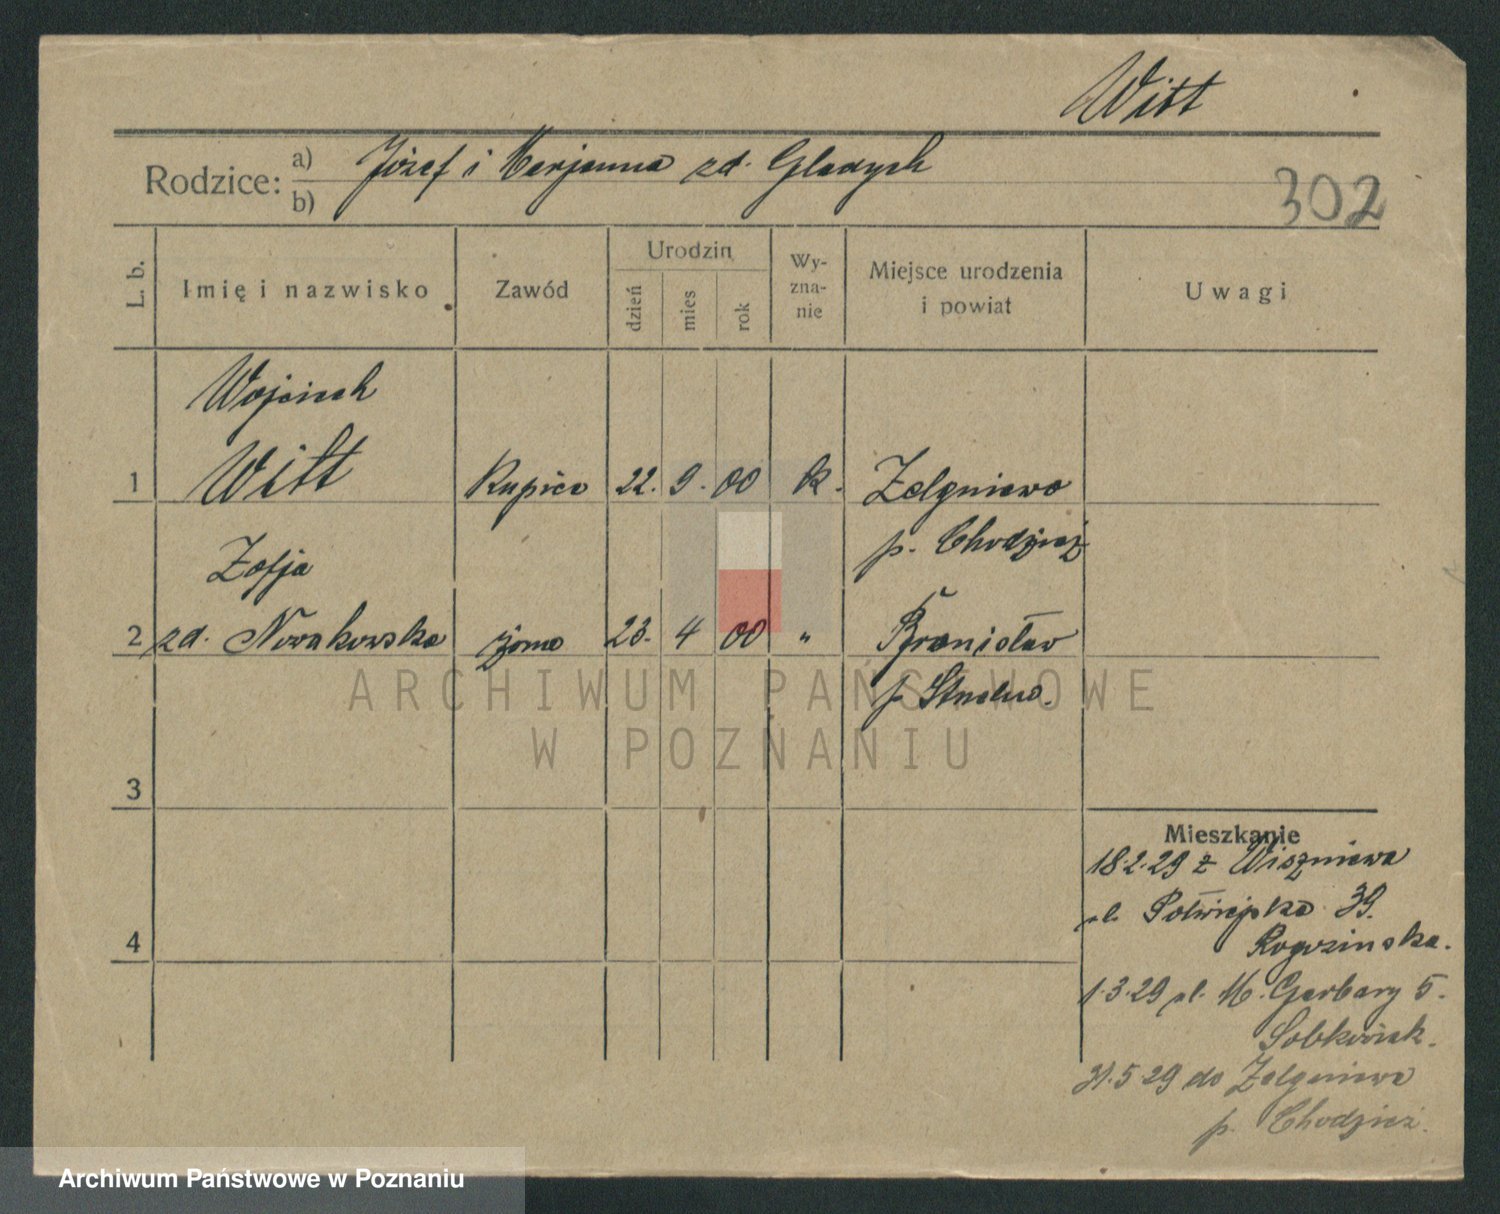 Witt
Rodzice: a) Józef i Marjanna zd. Gladych
b)
302
L. b. Imię i nazwisko Zawód Urodzin dzień mies rok Wyzna-nie Miejsce urodzenia i powiat Uwagi
Wojciech
1 Witt Kupiec 22. 9. 00 k. Zelgniewo
p. Chodzież
Zofja
2 zd. Nowakowska żona 23. 4 00 " Bronisław
p. Strzelno.
3
4
Mieszkanie
18.2.29 z Wiszniewa
ul. Półwiejska 39.
Rogozinska.
1.3.29 ul. M. Garbary 5.
Sobkowiak.
31.5.29 do Zelgniewa
p. Chodzież.
ARCHIWUM PAŃSTWOWE
W POZNANIU
Archiwum Państwowe w Poznaniu